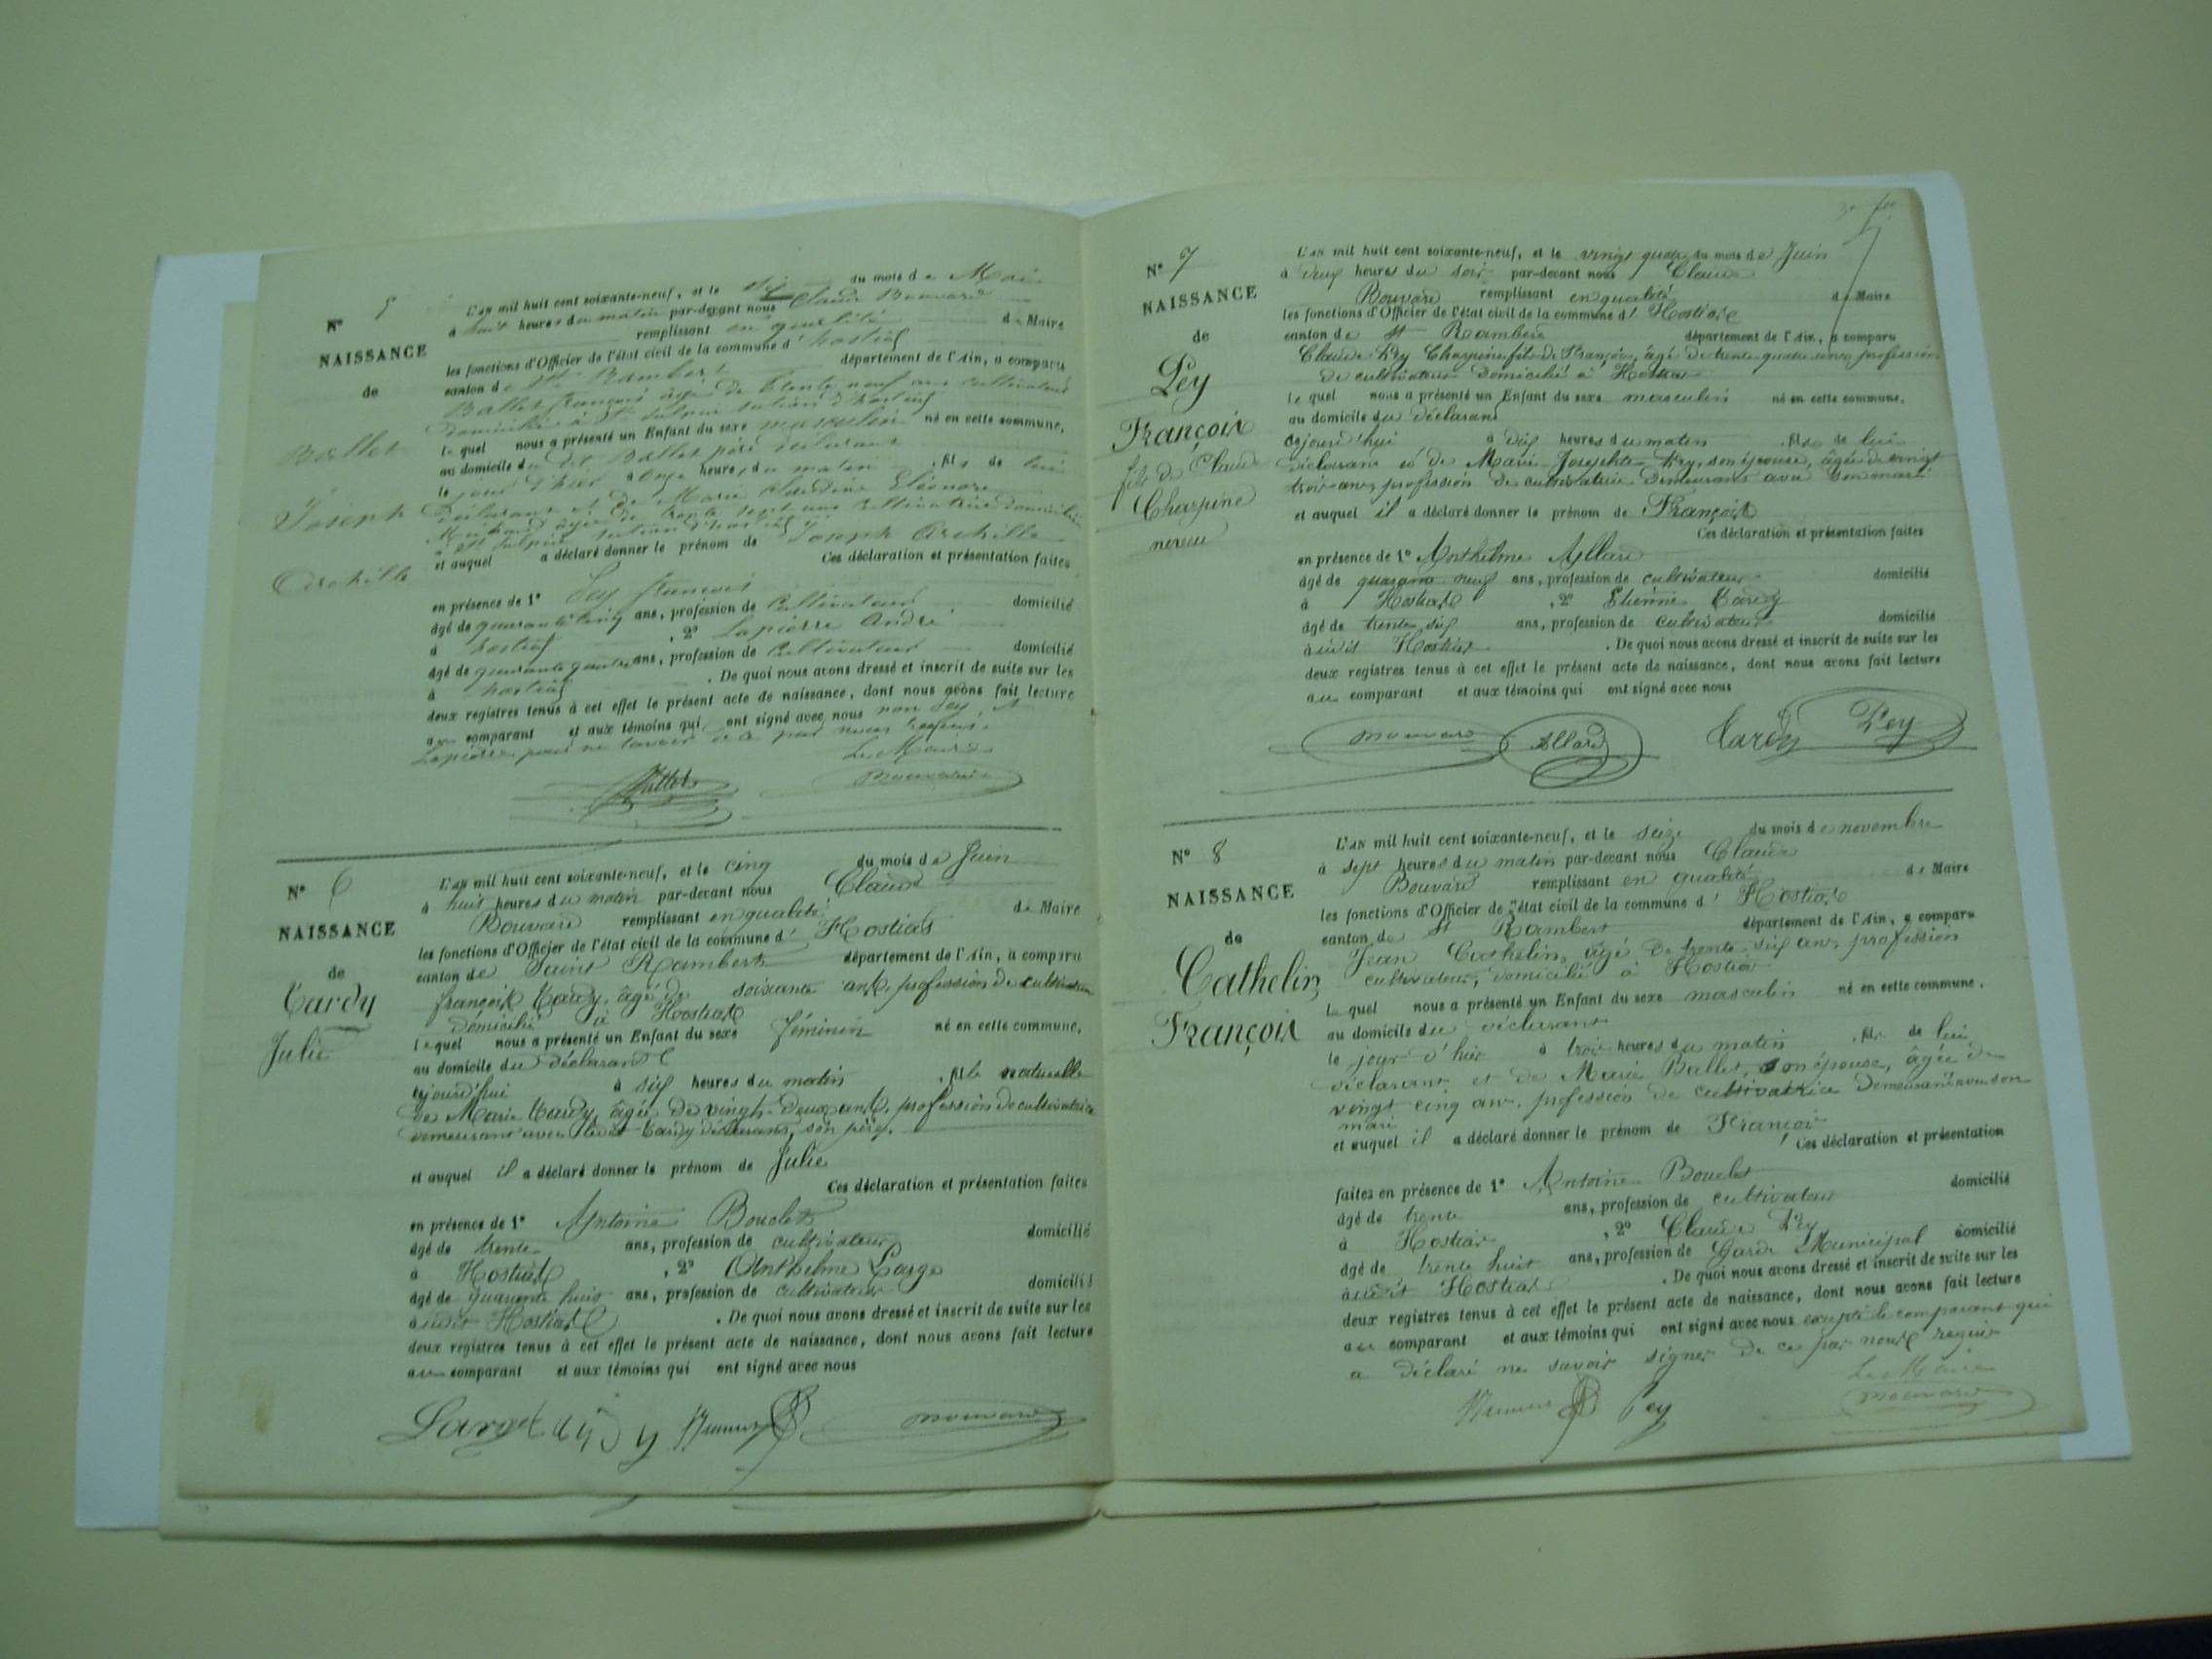 N° 5
NAISSANCE
de
Ballet
Joseph
Archille
L'an mil huit cent soixante-neuf, et le dix du mois de Mai
à huit heures du matin par-devant nous Claude Bouvard
remplissant en qualité de Maire
les fonctions d'Officier de l'état civil de la commune d' hostias
canton de St Rambert département de l'Ain, a comparu
Ballet françois âgé de trente neuf ans cultivateur
domicilié à St Sulpice d'hostias
le quel nous a présenté un Enfant du sexe masculin né en cette commune,
au domicile du dit Ballet père déclarant
le jour d'hier à onze heures du matin , fils de lui
déclarant et de Marie Claudine Eléonore
âgée de trente sept ans cultivatrice domiciliée
à St Sulpice
et auquel a déclaré donner le prénom de Joseph Archille
Ces déclaration et présentation faites
en présence de 1° Pey françois
âgé de quarante cinq ans, profession de Cultivateur domicilié
à hostias , 2° Lapierre André
âgé de quarante quatre ans, profession de Cultivateur domicilié
à hostias . De quoi nous avons dressé et inscrit de suite sur les
deux registres tenus à cet effet le présent acte de naissance, dont nous avons fait lecture
au comparant et aux témoins qui ont signé avec nous non Pey et
Lapierre pour ne savoir de ce par nous requis.
Le Maire
Ballet Bouvard
N° 6
NAISSANCE
de
Cardy
Julie
L'an mil huit cent soixante-neuf, et le cinq du mois de Juin
à huit heures du matin par-devant nous Claude
Bouvard remplissant en qualité de Maire
les fonctions d'Officier de l'état civil de la commune d' Hostias
canton de Saint Rambert département de l'Ain, a comparu
françois Cardy, âgé de soixante ans, profession de cultivateur
domicilié à Hostias
le quel nous a présenté un Enfant du sexe féminin né en cette commune,
au domicile du déclarant
ajourd'hui à six heures du matin , fille naturelle
de Marie Cardy, âgée de vingt-deux ans, profession de cultivatrice
demeurant avec ledit Cardy déclarant, son père.
et auquel il a déclaré donner le prénom de Julie
Ces déclaration et présentation faites
en présence de 1° Antoine Bouclet
âgé de trente ans, profession de cultivateur domicilié
à Hostias , 2° Anthelme Large
âgé de quarante huit ans, profession de cultivateur domicilié
audit Hostias . De quoi nous avons dressé et inscrit de suite sur les
deux registres tenus à cet effet le présent acte de naissance, dont nous avons fait lecture
au comparant et aux témoins qui ont signé avec nous
Large Bouvard
N° 7
NAISSANCE
de
Pey
François
fils de Claude
Charpine
neveu
L'an mil huit cent soixante-neuf, et le vingt quatre du mois de Juin
à deux heures du soir par-devant nous Claude
Bouvard remplissant en qualité de Maire
les fonctions d'Officier de l'état civil de la commune d' Hostias
canton de St Rambert département de l'Ain, a comparu
Claude Pey Charpine fils de François, âgé de trente quatre ans, profession
de cultivateur domicilié à Hostias
le quel nous a présenté un Enfant du sexe masculin né en cette commune,
au domicile du déclarant
ajourd'hui à dix heures du matin , fils de lui
déclarant et de Marie Josephte Pey, son épouse, âgée de vingt
trois ans, profession de cultivatrice demeurant avec son mari
et auquel il a déclaré donner le prénom de François
Ces déclaration et présentation faites
en présence de 1° Anthelme Allard
âgé de quarante neuf ans, profession de cultivateur domicilié
à Hostias , 2° Etienne Cardy
âgé de trente six ans, profession de cultivateur domicilié
audit Hostias . De quoi nous avons dressé et inscrit de suite sur les
deux registres tenus à cet effet le présent acte de naissance, dont nous avons fait lecture
au comparant et aux témoins qui ont signé avec nous
Bouvard Allard Cardy Pey
N° 8
NAISSANCE
de
Cathelin
François
L'an mil huit cent soixante-neuf, et le seize du mois de novembre
à sept heures du matin par-devant nous Claude
Bouvard remplissant en qualité de Maire
les fonctions d'Officier de l'état civil de la commune d' Hostias
canton de St Rambert département de l'Ain, a comparu
Jean Cathelin, âgé de trente-six ans, profession
cultivateur, domicilié à Hostias
le quel nous a présenté un Enfant du sexe masculin né en cette commune,
au domicile du déclarant
le jour d'hier à trois heures du matin , fils de lui
déclarant et de Marie Ballet, son épouse, âgée de
vingt cinq ans, profession de cultivatrice demeurant avec son
mari
et auquel il a déclaré donner le prénom de François
Ces déclaration et présentation
faites en présence de 1° Antoine Bouclet
âgé de trente ans, profession de cultivateur domicilié
à Hostias , 2° Claude Pey
âgé de trente huit ans, profession de Garde Municipal domicilié
audit Hostias . De quoi nous avons dressé et inscrit de suite sur les
deux registres tenus à cet effet le présent acte de naissance, dont nous avons fait lecture
au comparant et aux témoins qui ont signé avec nous excepté le comparant qui
a déclaré ne savoir signer de ce par nous requis
Le Maire
Pey Bouvard